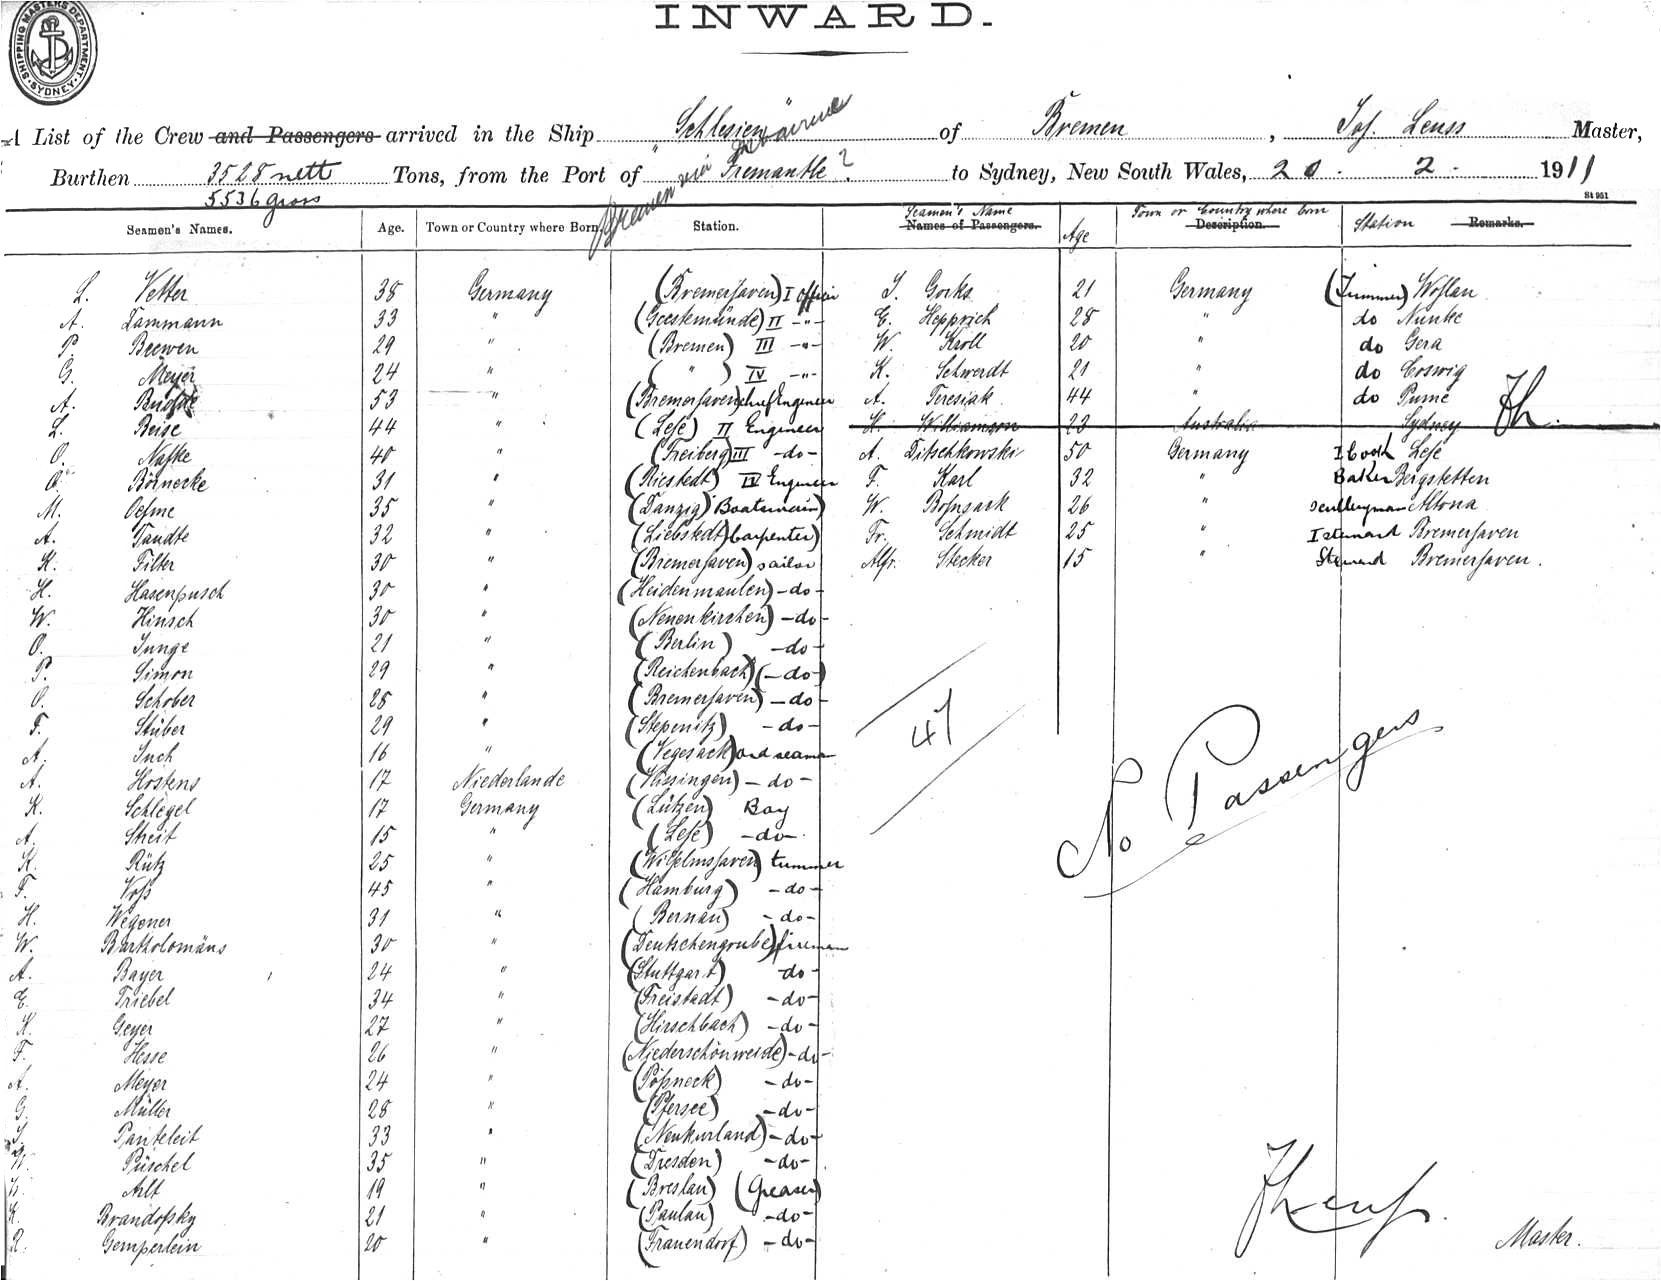 SHIPPING MASTERS DEPARTMENT. SYDNEY.
INWARD.
A List of the Crew and Passengers arrived in the Ship "Schlesien" of Bremen, Joh. Leuss Master,
Burthen 3528 nett Tons, from the Port of Bremen via Fremantle? to Sydney, New South Wales, 20. 2. 1911
5536 gross
St 951
Seamen's Names. Age. Town or Country where Born. Station. Seamen's Name Names of Passengers. Age Town or Country where born Description. Station Remarks.
L. Vetter 38 Germany (Bremerhaven) I Officer J. Gorks 21 Germany (Trimmer) Wohlau
A. Lammann 33 " (Geestemünde) II -"- E. Hepprich 28 " do
P. Beewen 29 " (Bremen) III -"- W. Kroll 20 " do Gera
G. Meyer 24 " ( " ) IV -"- K. Schwerdt 21 " do Coswig
A. 53 " (Bremerhaven) chief Engineer A. Teresiak 44 " do
L. Beise 44 " (Lehe) II Engineer H. Williamson 23 Australia Sydney
O. Nafke 40 " (Freiberg) III -do- A. Ditschkowski 50 Germany I Cook Lehe
O. Börnecke 31 " (Riestedt) IV Engineer F. Karl 32 " Baker Bergstetten
M. Oehme 35 " (Danzig) Boatswain W. Bohnsack 26 " sculleryman Altona
A. Tandte 32 " (Liebstedt) Carpenter Fr. Schmidt 25 " I steward Bremerhaven
K. Filter 30 " (Bremerhaven) sailor Alfr. Stecker 15 " Steward Bremerhaven.
H. Hasenpusch 30 " (Heidenmaulen) -do-
W. Hinsch 30 " (Neuenkirchen) -do-
O. Junge 21 " (Berlin) -do-
P. Simon 29 " (Reichenbach) (-do-)
O. Schober 28 " (Bremerhaven) -do-
F. Stüber 29 " (Stepenitz) -do-
A. Juch 16 " (Vegesack) ord seaman
A. Hostens 17 Niederlande (Vlissingen) -do-
K. Schlegel 17 Germany (Lützen) Boy
A. Streit 15 " (Lehe) -do-
K. Rütz 25 " (Wilhelmshaven) trimmer
F. Voß 45 " (Hamburg) -do-
H. Wegener 31 " (Bernau) -do-
W. Bartholomäus 30 " (Deutschengrube) fireman
A. Bayer 24 " (Stuttgart) do-
E. Triebel 34 " (Freistadt) -do-
K. Geyer 27 " (Hirschbach) -do-
F. Hesse 26 " (Niederschönweide) -do-
A. Meyer 24 " (Pößneck) -do-
G. Müller 28 " (Pfersee) -do-
J. Panteleit 33 " (Neukurland) -do-
W. Püschel 35 " (Dresden) -do-
Alt 19 " (Breslau) (Greaser)
K. Brandofsky 21 " (Paulau) -do-
R. Gemperlein 20 " (Frauendorf) -do-
47
No Passengers
JhLeuss.
Master.